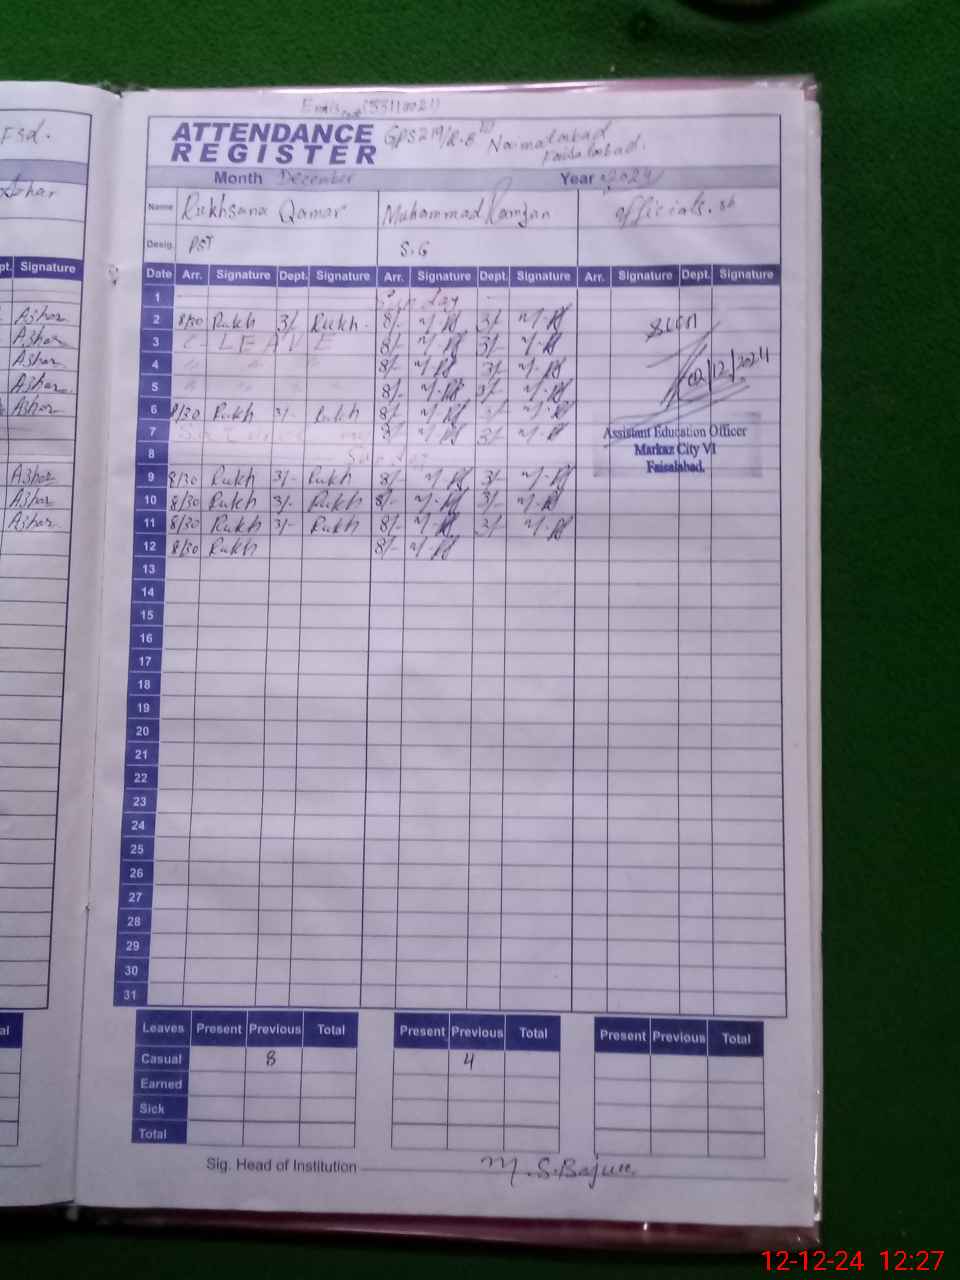 Fsd.
Azhar
pt. Signature
Azhar
Azhar
Azhar
Azhar
Azhar
Azhar
Azhar
Azhar
ATTENDANCE
REGISTER
GPS 219/R.B Naimatabad
Faisalabad.
Month December Year 2024
Name Rukhsana Qamar Muhammad Ramzan officials.
Desig. PST S.G
Date Arr. Signature Dept. Signature Arr. Signature Dept. Signature Arr. Signature Dept. Signature
1 Sunday
2 8/30 Rukh 3/- Rukh 8/- 3/-
3 C-LEAVE 8/- 3/-
4 " " " 8/- 3/-
5 " " " 8/- 3/-
6 8/30 Rukh 3/- Rukh 8/- 3/-
7 8/- 3/-
8 Sunday
9 8/30 Rukh 3/- Rukh 8/- 3/-
10 8/30 Rukh 3/- Rukh 8/- 3/-
11 8/30 Rukh 3/- Rukh 8/- 3/-
12 8/30 Rukh 8/-
02/12/2024
Assistant Education Officer
Markaz City VI
Faisalabad.
13
14
15
16
17
18
19
20
21
22
23
24
25
26
27
28
29
30
31
al
Leaves Present Previous Total Present Previous Total Present Previous Total
Casual 8 4
Earned
Sick
Total
Sig. Head of Institution M.S.Bajwa
12-12-24 12:27